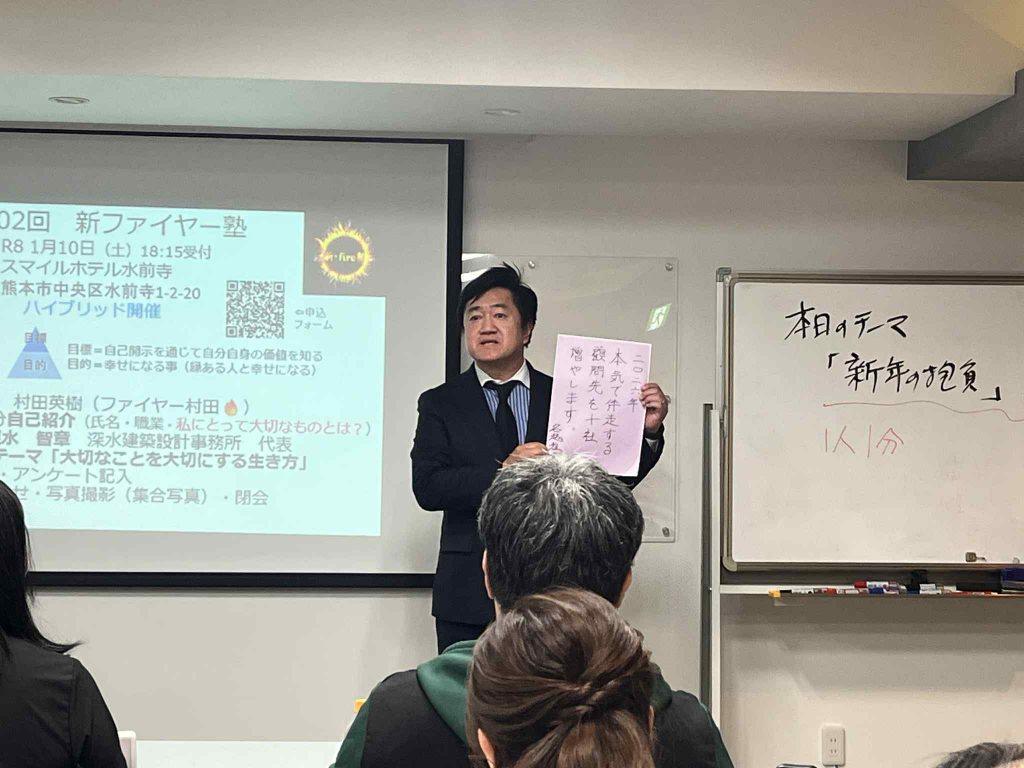 02回 新ファイヤー塾
R8 1月10日（土）18:15受付
スマイルホテル水前寺
熊本市中央区水前寺1-2-20
ハイブリッド開催
⇦申込
フォーム
fire
目標
目的
目標＝自己開示を通じて自分自身の価値を知る
目的＝幸せになる事（縁ある人と幸せになる）
村田英樹（ファイヤー村田🔥）
分自己紹介（氏名・職業・私にとって大切なものとは？）
水 智章 深水建築設計事務所 代表
テーマ「大切なことを大切にする生き方」
・アンケート記入
せ・写真撮影（集合写真）・閉会
二〇二六年
本気で伴走する
顧問先を十社
増やします。
本日のテーマ
「新年の抱負」
1人1分